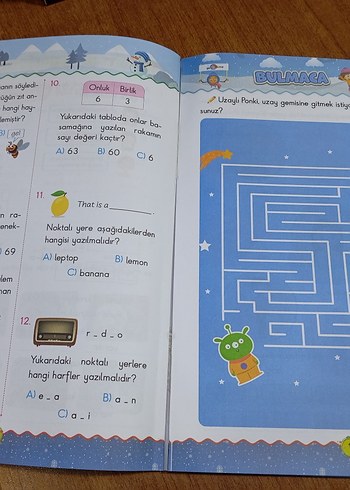 anın söyledi-
üğün zıt an-
hangi hay-
lemiştir?
B) [ gel ]
n ra-
enek-
69
lem
nan
10.
Onluk Birlik
6 3
Yukarıdaki tabloda onlar ba-
samağına yazılan rakamın
sayı değeri kaçtır?
A) 63 B) 60 C) 6
11.
That is a
Noktalı yere aşağıdakilerden
hangisi yazılmalıdır?
A) leptop B) lemon
C) banana
12.
r _ d _ o
Yukarıdaki noktalı yerlere
hangi harfler yazılmalıdır?
A) e _ a B) a _ n
C) a _ i
BULMACA
Uzaylı Ponki, uzay gemisine gitmek istiyo
sunuz?